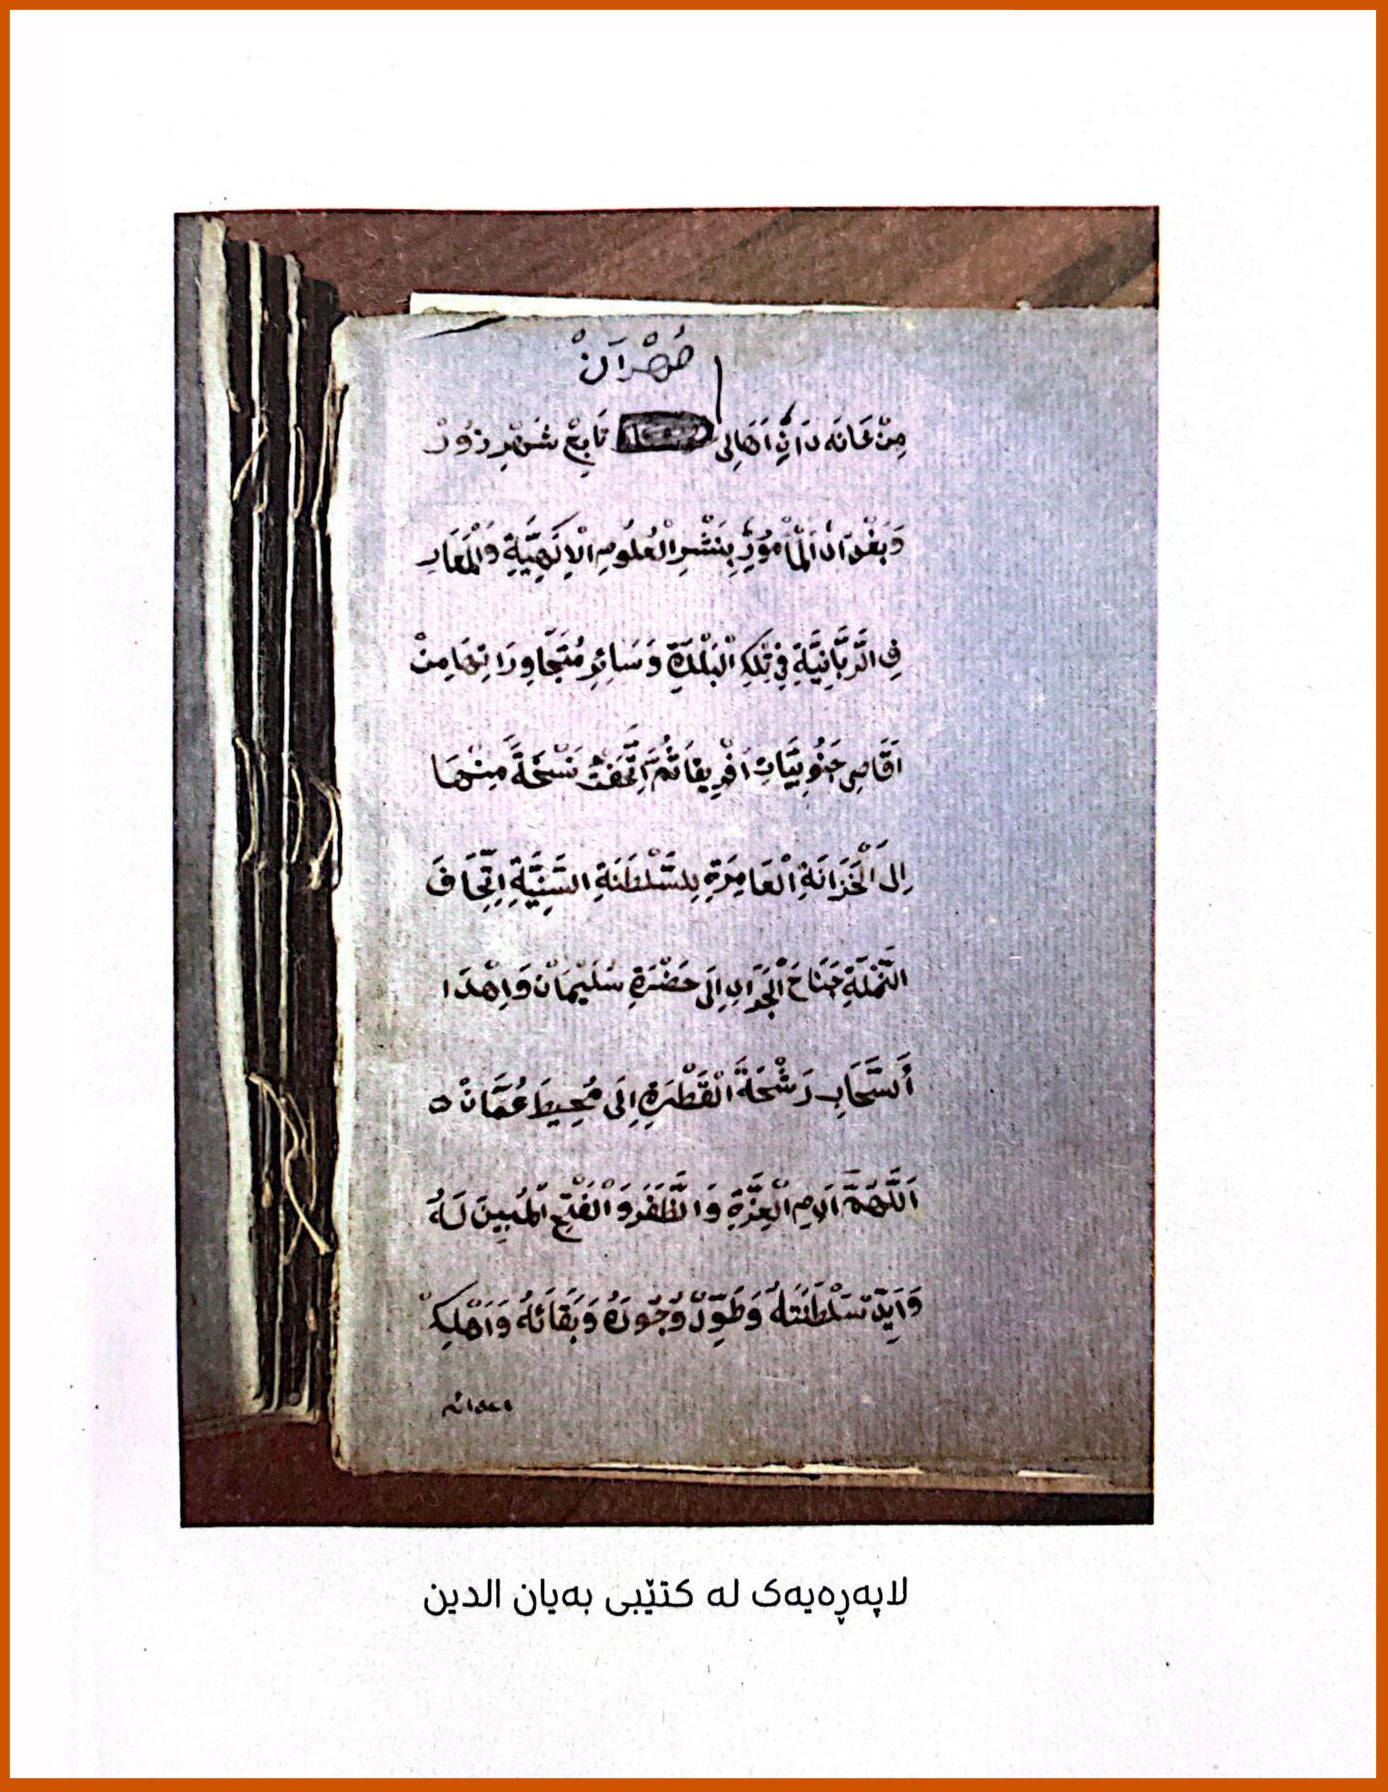 صُهْرَانْ
مِنْ خَانَه دَانِ اَهَالِى تَابِعْ شَهْرِ زُوْرْ
وَبَغْدَاد اَلْمَأْمُوْرِ بِنَشْرِ الْعُلُومِ الْاِلَهِيَّةِ وَالْمَعَارِ
فِ الرَّبَّانِيَّةِ فِي تِلْكِ الْبَلْدَةِ وَسَائِرِ مُتَجَاوِرَاتِهَا مِنْ
اَقَاصِى جَنُوبِيَّاتِ اَفْرِيقَا ثُمَّ اَتَّحَفْتُ نَسْخَةً مِنْهَا
اِلَى الْخَزَانَةِ الْعَامِرَةِ لِلسَّلْطَنَةِ السَّنِيَّةِ اِتِّحَافَ
النَّمْلَةِ جَنَاحَ الْجَرَادِ اِلَى حَضْرَةِ سُلَيْمَانْ وَاِهْدَا
أَلسَّحَابِ رَشْحَةَ الْقَطْرَةِ اِلَى مُحِيطَ عُمَّانْ ٥
اَللَّهُمَّ اَدِمِ الْعِزَّةِ وَالظَّفَرَ وَالْفَتْحِ الْمُبِينَ لَهُ
وَاَيِّدْ سَلْطَنَتَهُ وَطَوِّلْ وُجُودَهُ وَبَقَائَهُ وَاَهْلِكْ
اعدائه
لاپەڕەیەک لە کتێبی بەیان الدین